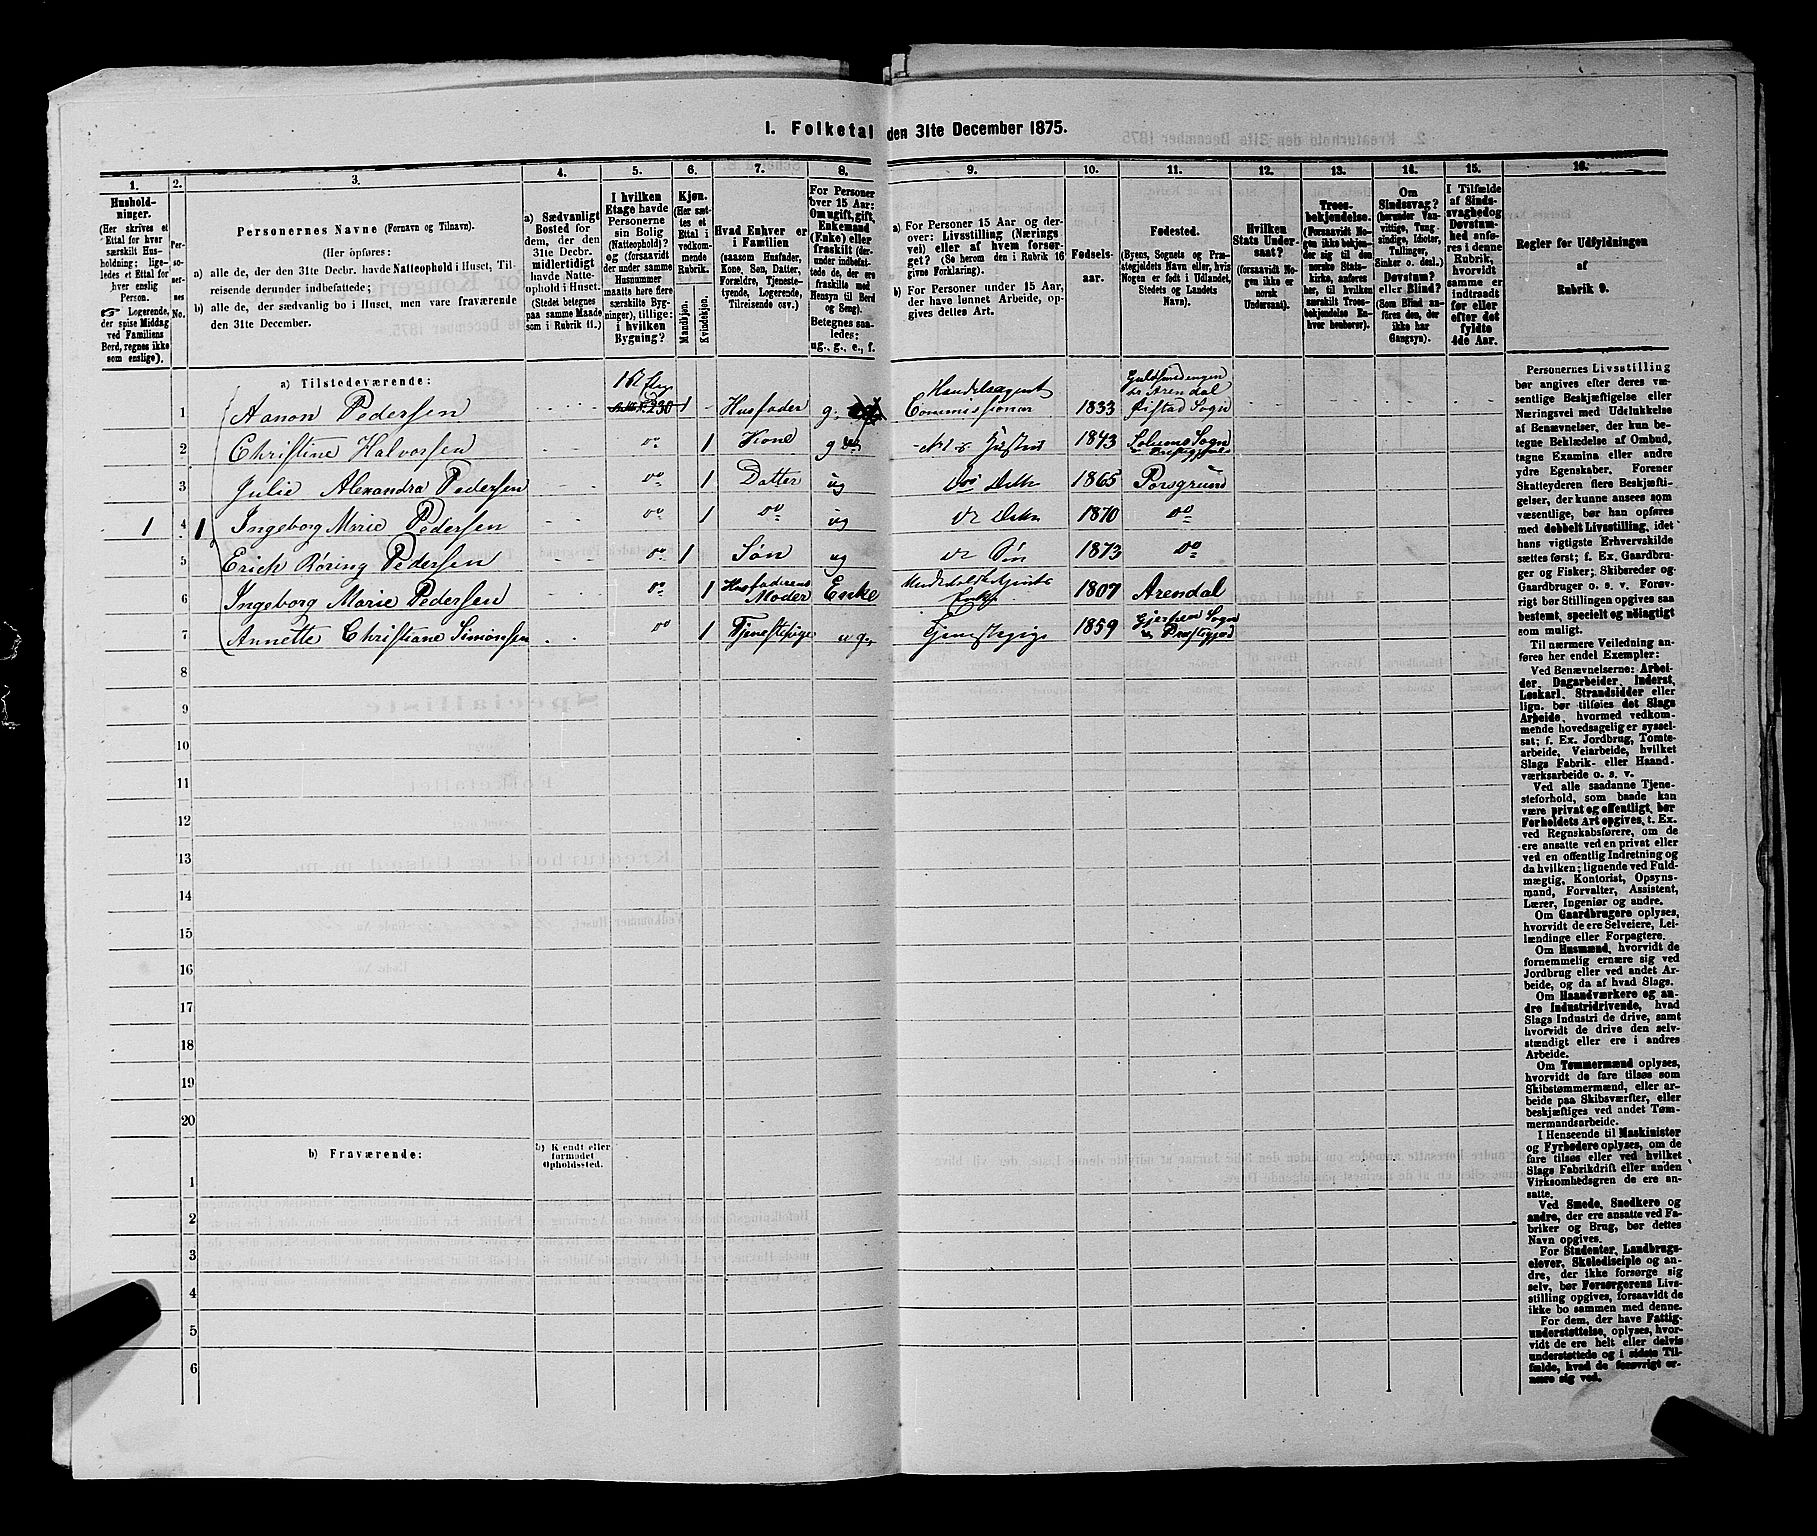 1. Folketal den 31te December 1875.
1. 2. 3. 4. 5. 6. 7. 8. 9. 10. 11. 12. 13. 14. 15. 16.
Hushold-
ninger.
(Her skrives et
Ettal for hver
særskilt Hus-
holdning; lige-
ledes et Ettal for
hver enslig
Person.
☞ Logerende,
der spise Middag
ved Familiens
Bord, regnes ikke
som enslige).
Per-
so-
ner-
nes
No.
Personernes Navne (Fornavn og Tilnavn).
(Her opføres:
a) alle de, der den 31te Decbr. havde Natteophold i Huset, Til-
reisende derunder indbefattede;
b) alle de, der sædvanlig bo i Huset, men vare fraværende
den 31te December.
a) Sædvanligt
Bosted for
dem, der den
31te Decbr.
midlertidigt
havde Natte-
ophold i Huset.
(Stedet betegnes
paa samme Maade
som i Rubrik 11.)
I hvilken
Etage havde
Personerne
sin Bolig
(Natteophold)?
og (forsaavidt
der under samme
Husnummer
maatte høre flere
særskilte Byg-
ninger), tillige:
i hvilken
Bygning?
Kjøn.
(Her sæt-
tes et
Ettal i
vedkom-
mende
Rubrik.
Mandkjøn.
Kvindekjøn.
Hvad Enhver er
i Familien
(saasom Husfader,
Kone, Søn, Datter,
Forældre, Tjeneste-
tyende, Logerende,
Tilreisende osv.)
For Personer
over 15 Aar:
Om ugift, gift,
Enkemand
(Enke) eller
fraskilt (der-
under indbefat-
tede de, der ere
fraskilte med
Hensyn til Bord
og Seng).
Betegnes saa-
ledes:
ug., g., e., f.
a) For Personer 15 Aar og der-
over: Livsstilling (Nærings
vei) eller af hvem forsør-
get? (Se herom den i Rubrik 16
givne Forklaring).
b) For Personer under 15 Aar,
der have lønnet Arbeide, op-
gives dettes Art.
Fødsels-
aar.
Fødested.
(Byens, Sognets og Præ-
stegjeldets Navn eller, hvis
Nogen er født i Udlandet,
Stedets og Landets
Navn).
Hvilken
Stats Under-
saat?
(forsaavidt No-
gen ikke er
norsk
Undersaat).
Troes-
bekjendelse.
(Forsaavidt No-
gen ikke bekjen-
der sig til den
norske Stats-
kirke, anføres
her, til hvilken
særskilt Troes-
bekjendelse En-
hver henhører).
Om
Sindssvag?
(herunder Van-
vittige, Tung-
sindige, Idioter,
Tullinger,
Sinker o. desl.)
Døvstum?
eller Blind?
(Som Blind an-
føres den, der
ikke har
Gangsyn).
I Tilfælde
af Sinds-
svaghed og
Døvstum-
hed anfø-
res i denne
Rubrik,
hvorvidt
samme er
indtraadt
før eller
efter det
fyldte
4de Aar.
Regler for Udfyldningen
af
Rubrik 9.
a) Tilstedeværende:
1 Aanon Pedersen - 230 1 - Husfader g. Handelsagent Commissionær 1833 Arendal Øistad Sogn
2 Christine Halvorsen - do 1 Kone g 1843 Solums Sogn
3 Julie Alexandra Pedersen - do 1 Datter ug 1865 Porsgrund
1 1 4 Ingeborg Marie Pedersen - do 1 do ug 1870 do
5 Erich Röring Pedersen - do 1 Søn ug Søn 1873 do
6 Ingeborg Marie Pedersen - do 1 Husfaderens Moder Enke Enke 1807 Arendal
7 Annette Christiane Simonsen - do 1 Tjenestepige ug. Tjenestepige 1859 Gjerpen Sogn Præstegjeld
8
9
10
11
12
13
14
15
16
17
18
19
20
b) Fraværende:
b) Kjendt eller
formodet
Opholdssted.
1
2
3
4
5
6
Personernes Livsstilling
bør angives efter deres væ-
sentlige Beskjæftigelse eller
Næringsvei med Udelukkelse
af Benævnelser, der kun be-
tegne Beklædelse af Ombud,
tagne Examina eller andre
ydre Egenskaber. Forener
Skatteyderen flere Beskjæfti-
gelser, der kunne ansees som
væsentlige, bør han opgives
med dobbelt Livsstilling, idet
hans vigtigste Erhvervskilde
sættes først; f. Ex. Gaardbru-
ger og Fisker; Skibsreder og
Gaardbruger o. s. v. Forøv-
rigt bør Stillingen opgives saa
bestemt, specielt og nøiagtigt
som muligt.
Til nærmere Veiledning an-
føres her endel Exempler:
Ved Benævnelserne: Arbei-
der, Dagarbeider, Inderst,
Løskarl, Strandsidder eller
lign. bør tilføies det Slags
Arbeide, hvormed vedkom-
mende hovedsagelig er syssel-
sat; f. Ex. Jordbrug, Tomte-
arbeide, Veiarbeide, hvilket
Slags Fabrik- eller Haand-
værksarbeide o. s. v.
Ved alle saadanne Tjene-
steforhold, som baade kan
være privat og offentligt, bør
Forholdets Art opgives, t. Ex.
ved Regnskabsførere, om de
ere ansatte ved en privat eller
ved en offentlig Indretning og
da hvilken; lignende ved Fuld-
mægtig, Kontorist, Opsyns-
mand, Forvalter, Assistent,
Lærer, Ingeniør og andre.
Om Gaardbrugere oplyses,
hvorvidt de ere Selveiere, Lei-
lændinge eller Forpagtere.
Om Husmænd, hvorvidt de
fornemmelig ernære sig ved
Jordbrug eller ved andet Ar-
beide, og da af hvad Slags.
Om Haandværkere og an-
dre Industridrivende, hvad
Slags Industri de drive, samt
hvorvidt de drive den selv-
stændigt eller ere i andres
Arbeide.
Om Tømmermænd oplyses,
hvorvidt de fare tilsøs som
Skibstømmermænd, eller ar-
beide paa Skibsværfter, eller
beskjæftiges ved andet Tøm-
mermandsarbeide.
I Henseende til Maskinister
og Fyrbødere oplyses, om de
fare tilsøs eller ved hvilket
Slags Fabrikdrift eller anden
Virksomhedsgren de ere an-
satte.
Ved Smede, Snedkere og
andre, der ere ansatte ved Fa-
briker og Brug, bør dettes
Navn opgives.
For Studenter, Landbrugs-
elever, Skoledisciple og an-
dre, der ikke forsørge sig
selv, bør Forsørgerens Livs-
stilling opgives, forsaavidt de
ikke bo sammen med denne.
For dem, der have Fattig-
understøttelse, oplyses, hvor-
vidt de ere helt eller delvis
understøttede og i sidste Til-
fælde, hvad de forøvrigt er-
nære sig ved.